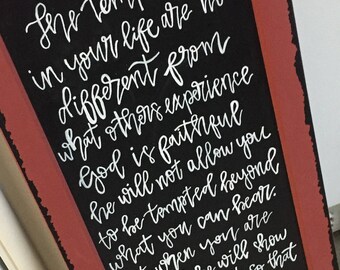 The temp
in your life are no
different from
what others experience
God is faithful
he will not allow you
to be tempted beyond
what you can bear.
when you are
he will show
so that